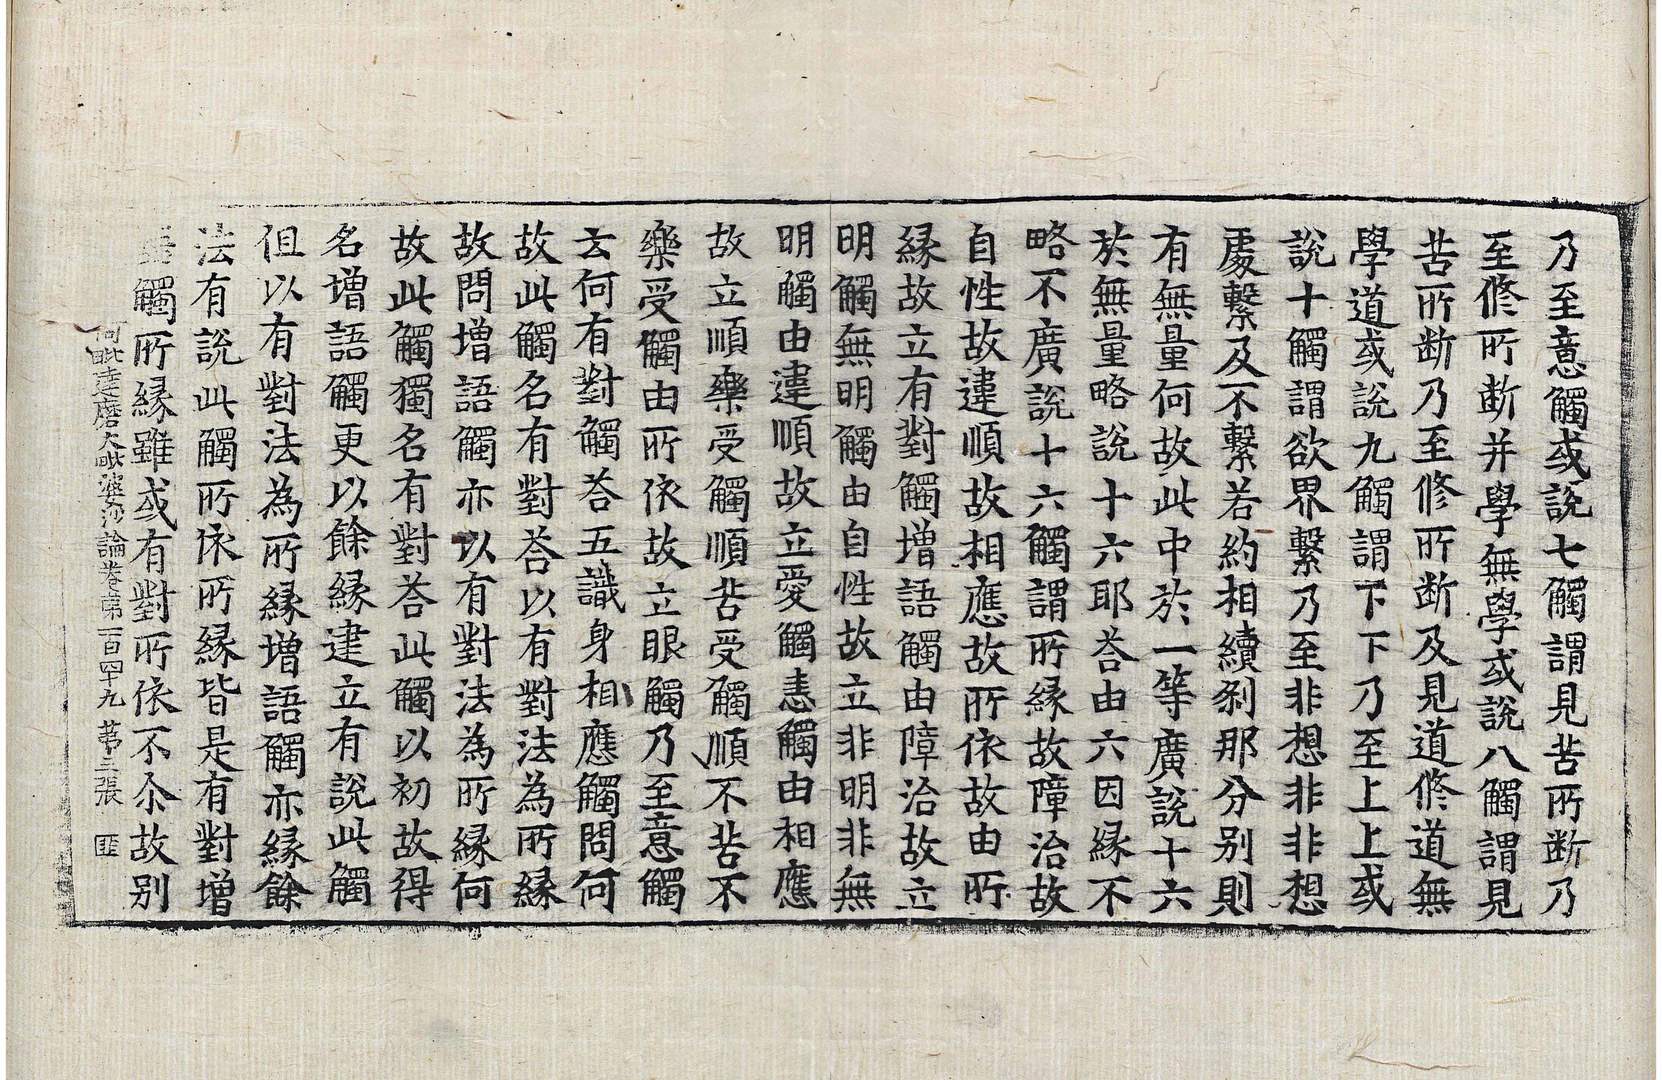 乃至意觸或說七觸謂見苦所断乃
至修所断并學無學或說八觸謂見
苦所断乃至修所断及見道修道無
學道或說九觸謂下下乃至上上或
說十觸謂欲界繫乃至非想非非想
處繫及不繫若約相續刹那分別則
有無量何故此中於一等廣說十六
於無量略說十六耶荅由六因緣不
略不廣說十六觸謂所緣故障治故
自性故違順故相應故所依故由所
緣故立有對觸增語觸由障治故立
明觸無明觸由自性故立非明非無
明觸由違順故立愛觸恚觸由相應
故立順樂受觸順苦受觸順不苦不
樂受觸由所依故立眼觸乃至意觸
云何有對觸荅五識身相應觸問何
故此觸名有對荅以有對法為所緣
故問增語觸亦以有對法為所緣何
故此觸獨名有對荅此觸以初故得
名增語觸更以餘緣建立有說此觸
但以有對法為所緣增語觸亦緣餘
法有說此觸所依所緣皆是有對增
語觸所緣雖或有對所依不尒故別
阿毗達磨大毗婆沙論卷第一百四十九 第三張 匪